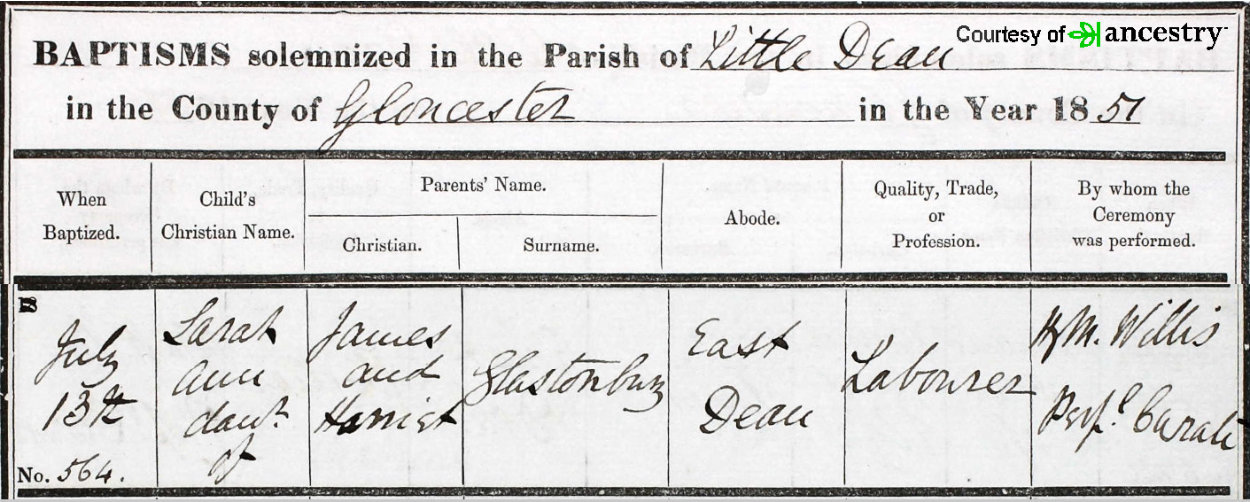 Courtesy of ancestry
BAPTISMS solemnized in the Parish of Little Dean
in the County of Gloncester in the Year 1851
When Baptized.
Child's Christian Name.
Parents' Name.
Christian.
Surname.
Abode.
Quality, Trade, or Profession.
By whom the Ceremony was performed.
July
13th
No. 564.
Sarah
Ann
daur.
of
James
and
Harriet
Glastonbury
East
Dean
Labourer
H M. Willis
Perpl. Curate